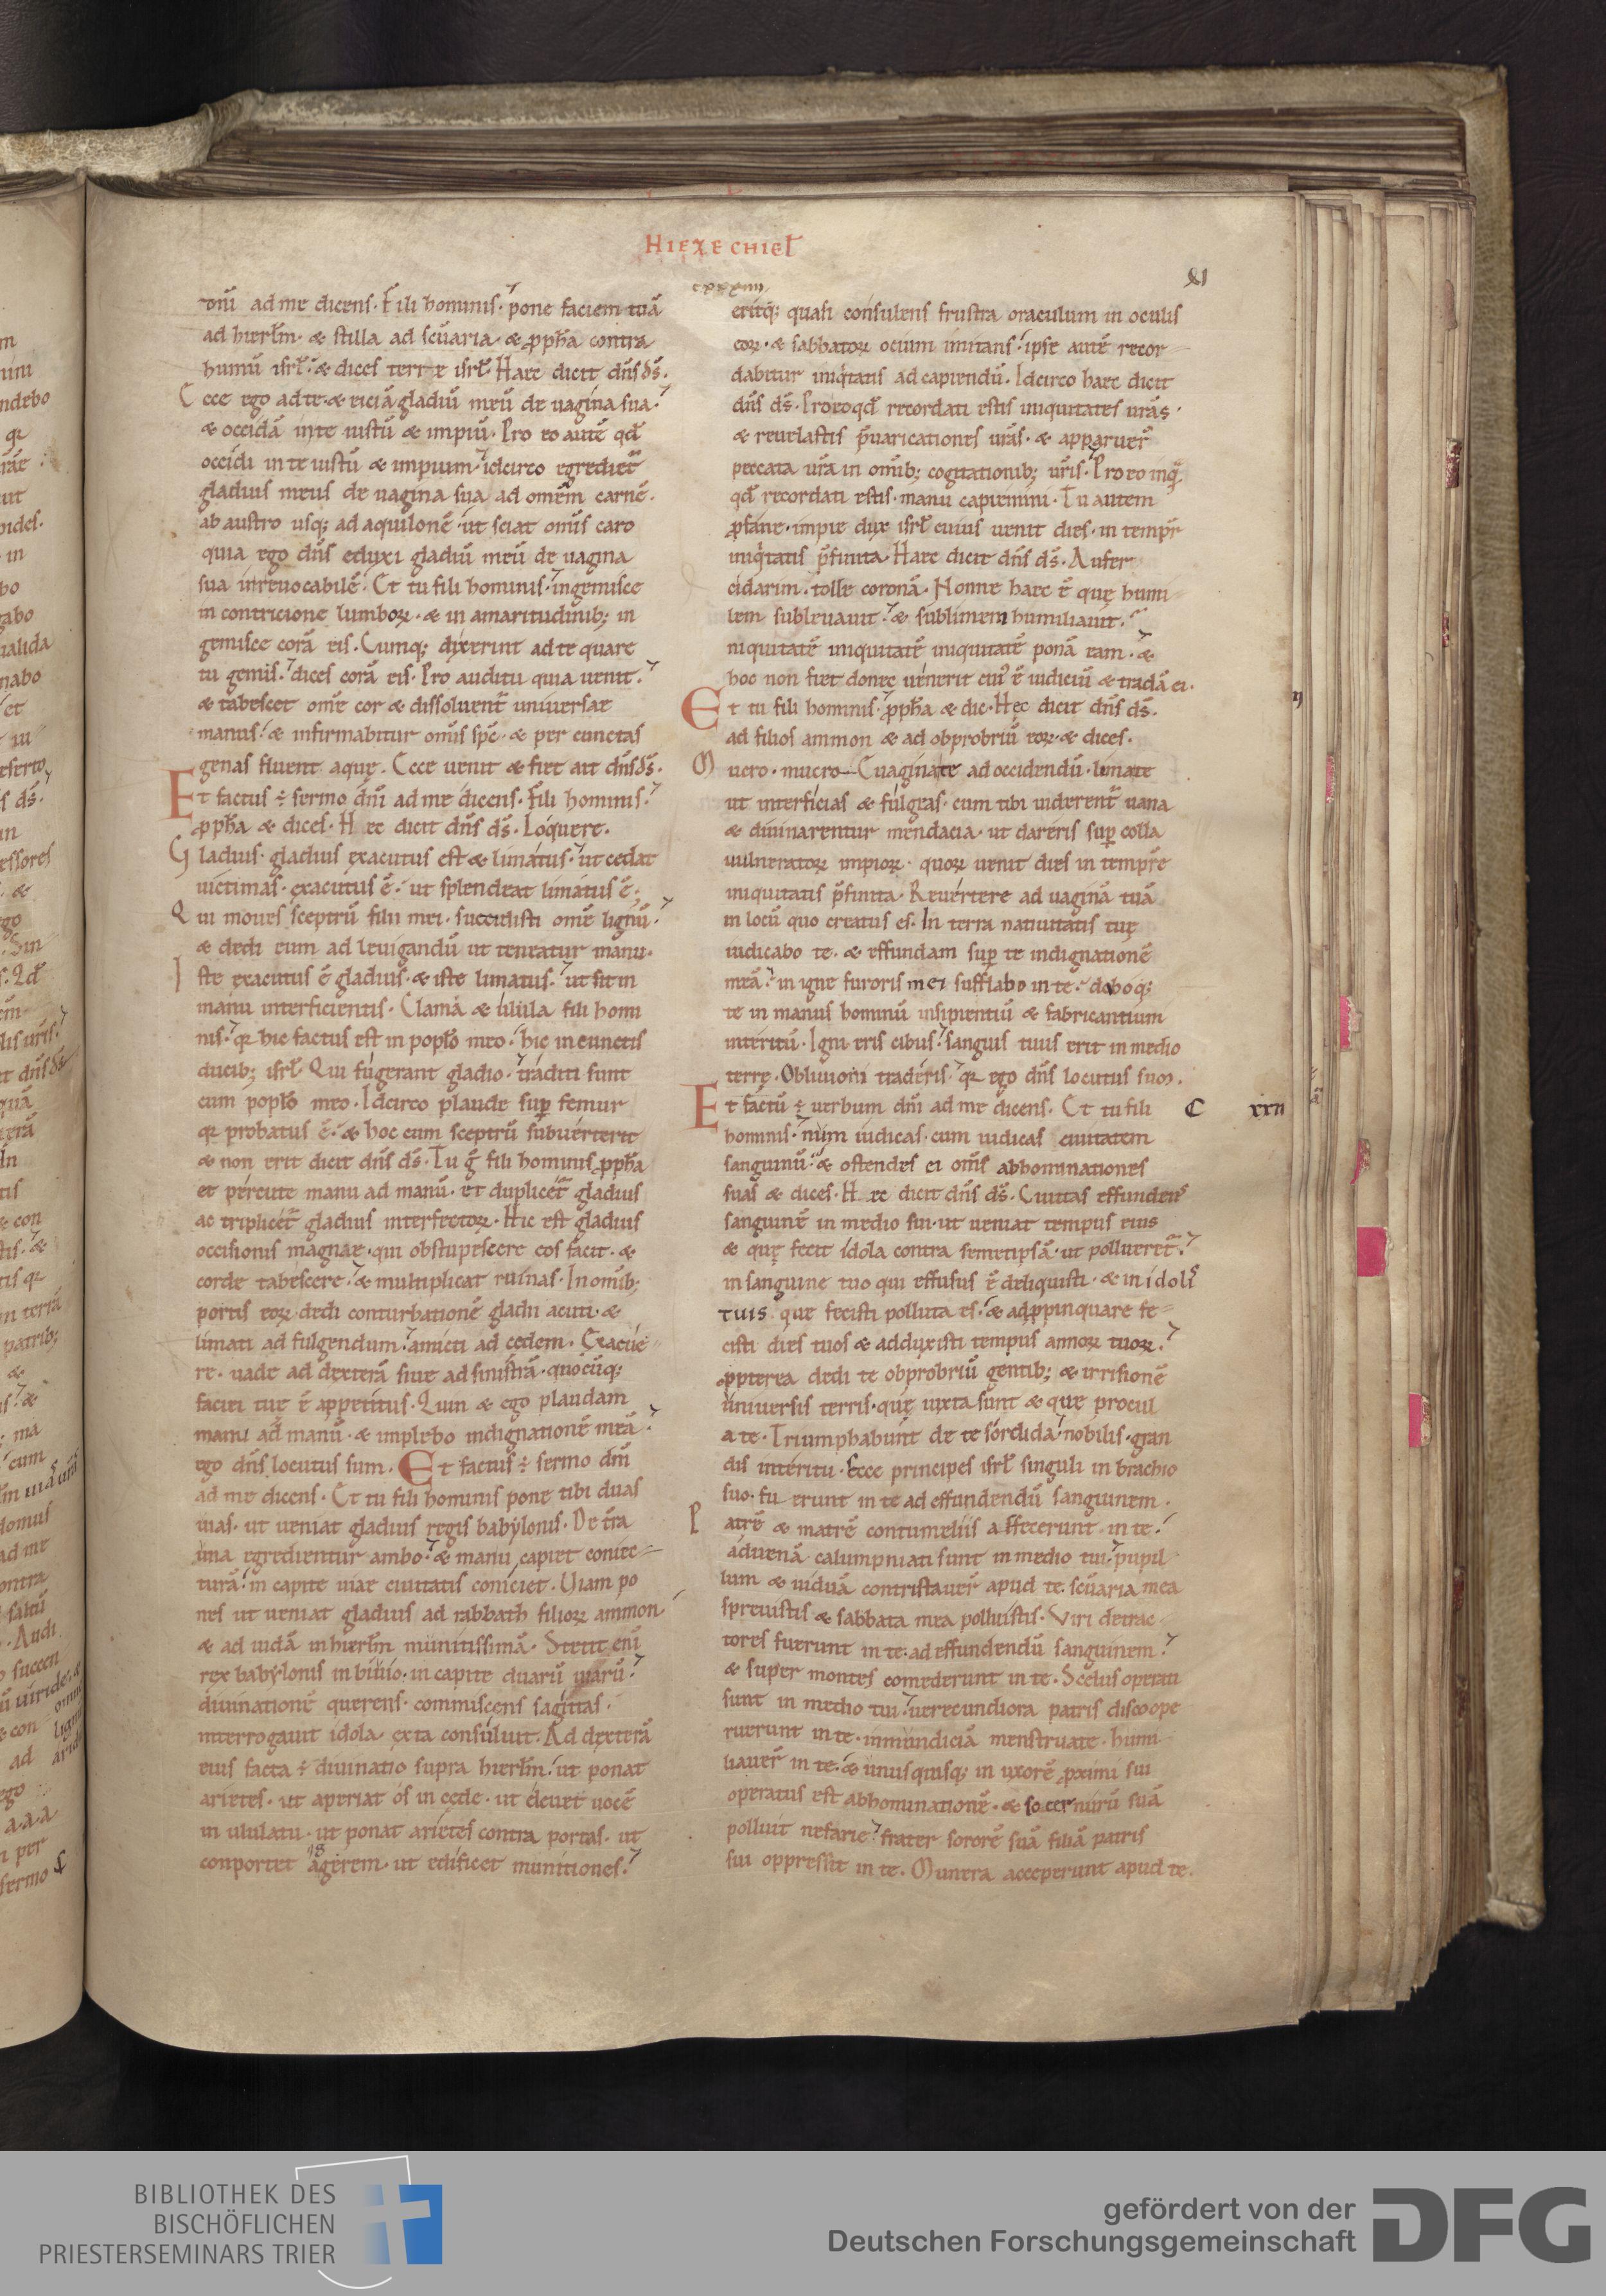 HIEZECHIEL
XI
dn̄i ad me dicens. Fili hominis. pone faciem tuā
ad hierl̄m. & stilla ad sc̄uaria. & ꝓph̄a contra
humū isrl̄. & dices terr e isrl̄. Haec dicit dn̄s ds̄.
Ecce ego ad te. & eiciā gladiū meū de uagina sua.
& occidā in te iustū & impiū. Pro eo autē qd̄
occidi in te iustū & impium. idcirco egrediet̄
gladius meus de uagina sua ad omēm carnē.
ab austro usq; ad aquilonē. ut sciat omīs caro
quia ego dn̄s eduxi gladiū meū de uagina
sua inreuocabilē. Et tu fili hominis. ingemisce
in contricione lumboꝝ. & in amaritudinib; in
gemisce corā eis. Cumq; dixerint ad te quare
tu gemis. dices corā eis. Pro auditu quia uenit.
& tabescet omē cor & dissoluent̄ uniuersae
manus. & infirmabitur omīs spc̄. & per cunctas
genas fluent aquę. Ecce uenit & fiet ait dn̄s ds̄.
Et factus ÷ sermo dn̄i ad me dicens. Fili hominis.
ꝓph̄a & dices. H ec dicit dn̄s ds̄. Loquere.
Gladius. gladius exacutus est & limatus. ut cedat
uictimas. exacutus ē. ut splendeat limatus ē;
Qui moues sceptrū filii mei. succidisti omē lignū.
& dedi eum ad leuigandū ut teneatur manu.
Iste exacutus ē gladius. & iste limatus. ut sit in
manu interficientis. Clama & ulula fili homi
nis. qꝛ hic factus est in popl̄o meo. hic in cunctis
ducib; isrl̄. Qui fugerant gladio. traditi sunt
cum popl̄o meo. Idcirco plaude sup̄ femur
qꝛ probatus ē. & hoc cum sceptrū subuerterit
& non erit dicit dn̄s ds̄. Tu ḡ fili hominis ꝓph̄a
et percute manu ad manū. et duplicet̄ gladius
ac triplicet̄ gladius interfectoꝝ. Hic est gladius
occisionis magnae. qui obstupescere eos facit. &
corde tabescere. & multiplicat ruinas. In omīb;
portis eoꝝ dedi conturbationē gladii acuti. &
limati ad fulgendum. amicti ad cedem. Exacue
re. uade ad dexterā siue ad sinistrā. quocūq;
faciei tuę ē appetitus. Quin & ego plaudam
manu ad manū. & implebo indignationē meā.
ego dn̄s locutus sum. Et factus ÷ sermo dn̄i
ad me dicens. Et tu fili hominis pone tibi duas
uias. ut ueniat gladius regis babylonis. De tr̄a
una egredientur ambo. & manu capiet coniec
turā. in capite uiae ciuitatis coniciet. Uiam po
nes ut ueniat gladius ad rabbath filioꝝ ammon
& ad iudā in hierl̄m munitissimā. Stetit enī
rex babylonis in biuio. in capite duarū uiarū.
diuinationē querens. commiscens sagittas.
interrogauit idola. exta consuluit. Ad dexterā
eius facta ÷ diuinatio supra hierl̄m. ut ponat
arietes. ut aperiat os in cede. ut eleuet uocē
in ululatu. ut ponat arietes contra portas. ut
conportet agerem. ut edificet munitiones.
eritq; quasi consulens frustra oraculum in oculis
eoꝝ. & sabbatoꝝ ocium imitans. ipse autē recor
dabitur iniqͥtatis ad capiendū. Idcirco haec dicit
dn̄s ds̄. Pro eo qd̄ recordati estis iniquitates ur̄as.
& reuelastis p̄uaricationes ur̄as. & apparuer̄
peccata ur̄a in omīb; cogitationib; ur̄is. Pro eo inqͣ
qd̄ recordati estis. manu capiemini. Tu autem
ꝓfane. impie dux isrl̄ cuius uenit dies. in tempr̄
iniqͥtatis p̄finita. Haec dicit dn̄s ds̄. Aufer
cidarim. tolle coronā. Nonne haec ē quę humi
lem subleuauit. & sublimem humiliauit.
niquitatē iniquitatē iniquitatē ponā eam. &
hoc non fiet donec uenerit cui᷒ ē iudiciū & tradā ei.
Et tu fili hominis. ꝓph̄a & dic. Hęc dicit dn̄s ds̄.
ad filios ammon & ad obprobriū eoꝝ. & dices.
Mucro. mucro Euaginate ad occidendū. limate
ut interficias & fulgeas. cum tibi uiderent̄ uana
& diuinarentur mendacia. ut dareris sup̄ colla
uulneratoꝝ impioꝝ. quoꝝ uenit dies in tempr̄e
iniquitatis p̄finita. Reuertere ad uaginā tuā
in locū quo creatus es. In terra natiuitatis tuę
iudicabo te. & effundam sup̄ te indignationē
meā. in igne furoris mei sufflabo in te. daboq;
te in manus hominū insipientiū & fabricantium
interitū. Igni eris cibus. sanguis tuus erit in medio
terrę. Obliuioni traderis. qꝛ ego dn̄s locutus sum.
Et factū ÷ uerbum dn̄i ad me dicens. Et tu fili C XXII
hominis. num iudicas. cum iudicas ciuitatem
sanguinū. & ostendes ei omīs abhominationes
suas & dices. H ec dicit dn̄s ds̄. Ciuitas effundens
sanguinē in medio sui. ut ueniat tempus eius
& quę fecit idola contra semetipsā. ut polluéret̄.
in sanguine tuo qui effusus ē deliquisti. & in idolis
tuis que fecisti polluta es. & adꝓpinquare fe
cisti dies tuos & adduxisti tempus annoꝝ tuoꝝ.
ꝓpterea dedi te obprobriū gentib; & irrisionē
uniuersis terris. quę iuxta sunt & quę procul
a te. Triumphabunt de te sordida. nobilis. gran
dis interitu. Ecce principes isrl̄ singuli in brachio
suo. fu erunt in te ad effundendū sanguinem.
Patrē & matrē contumeliis affecerunt in te.
aduenā calumpniati sunt in medio tui. pupil
lum & uiduā contristauer̄ apud te. sc̄uaria mea
spreuistis & sabbata mea polluistis. Viri detrac
tores fuerunt in te. ad effundendū sanguinem.
& super montes comederunt in te. Scelus operati
sunt in medio tui. uerecundiora patris discoope
ruerunt in te. inmundiciā menstruate humi
liauer̄ in te. & unusquisq; in uxorē ꝓximi sui
operatus est abhominationē. & socer nurū suā
polluit nefarie. frater sororē suā filiā patris
sui oppressit in te. Munera acceperunt apud te.
BIBLIOTHEK DES
BISCHÖFLICHEN
PRIESTERSEMINARS TRIER
gefördert von der
Deutschen Forschungsgemeinschaft
DFG